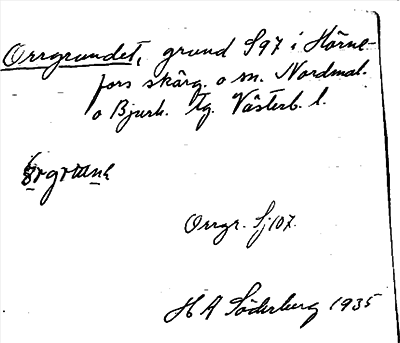 Orrgrundet, grund S97 i Hörne-
fors skärg. o sn. Nordmal.
o Bjurh. tg. Västerb. l.
Orrgr. Sj107.
H A Söderberg 1935